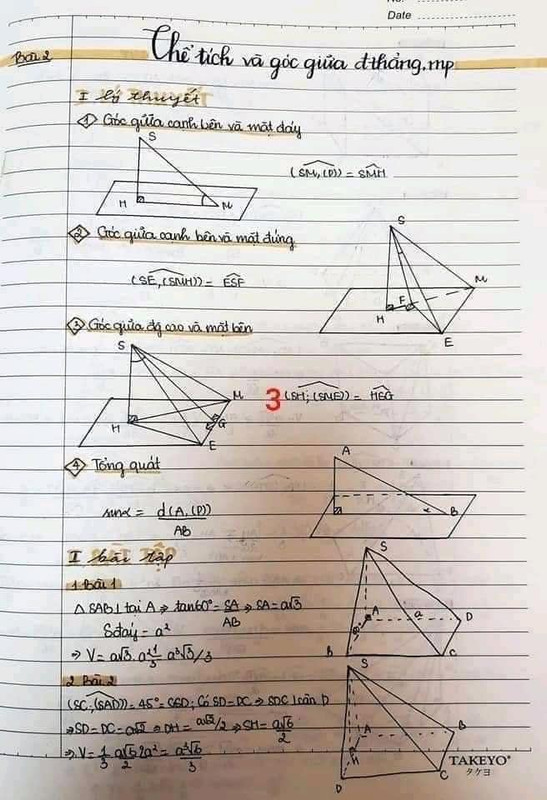 No.:
Date
Bài 2
Thể tích và góc giữa đthẳng, mp
I lý thuyết
1 Góc giữa cạnh bên và mặt đáy
S
H
M
(SM,(P)) = SMH
2 Góc giữa cạnh bên và mặt đứng
(SE,(SMH)) = ESF
S
M
H
F
E
3 Góc giữa đg cao và mặt bên
S
M
H
G
E
3 (SH;(SME)) = HSG
4 Tổng quát
sinα = d(A,(P))/AB
A
H
α
B
I bài tập
1 Bài 1
Δ SAB ⊥ tại A ⇒ tan60° = SA/AB ⇒ SA = a√3
Sđáy = a²
⇒ V = a√3.a².1/3 = a³√3/3
S
A
a
D
B
C
2 Bài 2
(SC,(SAD)) = 45° = CSD; Có SD = DC ⇒ SDC ⊥ cân D
⇒ SD = DC = a√2 ⇒ DH = a√2/2 ⇒ SH = a√6/2
⇒ V = 1/3 a√6/2 2a² = a³√6/3
S
A
B
H
D
C
TAKEYO®
タケヨ